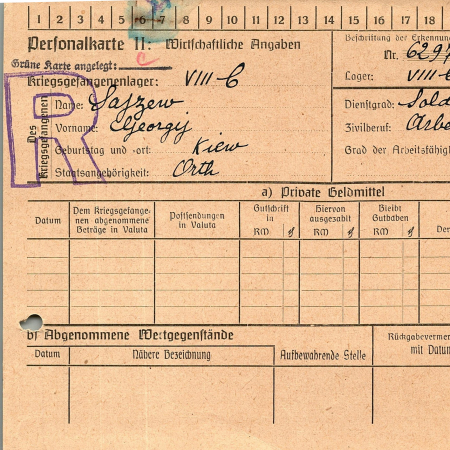 1 2 3 4 5 6 7 8 9 10 11 12 13 14 15 16 17 18
Personalkarte II: Wirtschaftliche Angaben
Beschriftung der Erkennun
Nr. 6297
Grüne Karte angelegt:
Kriegsgefangenenlager: VIII-C
Lager: VIII-C
R
Des Kriegsgefangenen
Name: Sajzew
Dienstgrad: Sold
Vorname: Georgij
Zivilberuf: Arbe
Geburtstag und -ort: Kiew
Grad der Arbeitsfähig
Staatsangehörigkeit: Orth
a) Private Geldmittel
Datum
Dem Kriegsgefange-
nen abgenommene
Beträge in Valuta
Postsendungen
in Valuta
Gutschrift
in
RM
Hiervon
ausgezahlt
RM
Bleibt
Guthaben
RM
Der
b) Abgenommene Wertgegenstände
Datum
Nähere Bezeichnung
Aufbewahrende Stelle
Rückgabeverme
mit Datum